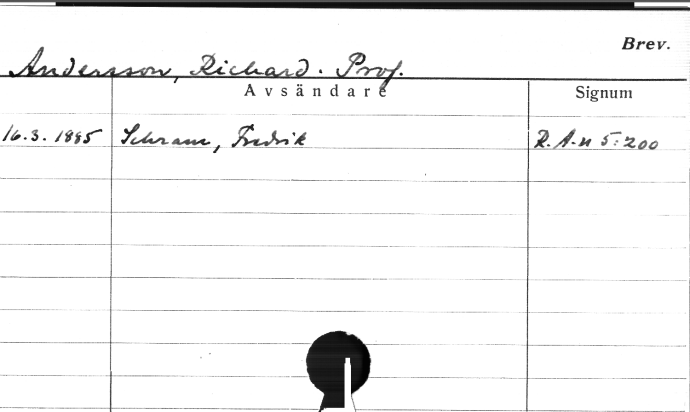 Brev.
Andersson, Richard. Prof.
Avsändare Signum
16.3.1885 Schram, Fredrik R.A.n 5:200